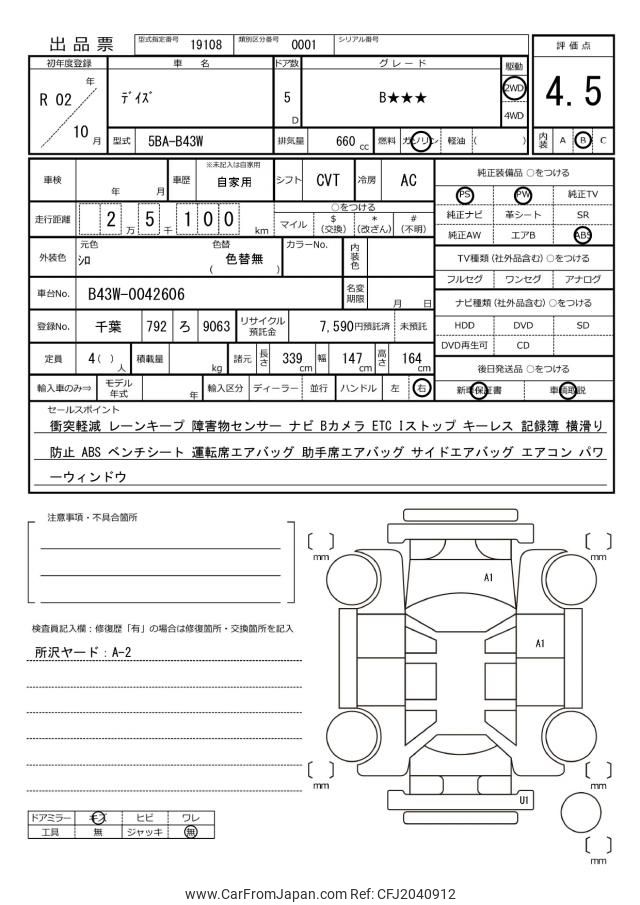 出品票
型式指定番号 19108 類別区分番号 0001 シリアル番号
評価点
4.5
内装 A B C
初年度登録 車名 ドア数 グレード 駆動
R 02 年 10 月
ﾃﾞｲｽﾞ
5 D
B★★★
2WD
4WD
型式 5BA-B43W 排気量 660 cc 燃料 ガソリン 軽油 ( )
車検 年 月 車歴 ※未記入は自家用 自家用 シフト CVT 冷房 AC
走行距離 2 万 5 千 1 0 0 km
○をつける
マイル $(交換) *(改ざん) #(不明)
外装色 元色 ｼﾛ 色替 ( 色替無 ) カラーNo. 内装色
車台No. B43W-0042606 名変期限 月 日
登録No. 千葉 792 ろ 9063 リサイクル預託金 7,590円預託済 未預託
定員 4 ( ) 人 積載量 kg 諸元 長さ 339 cm 幅 147 cm 高さ 164 cm
輸入車のみ⇒ モデル年式 年 輸入区分 ディーラー 並行 ハンドル 左 右
純正装備品 ○をつける
PS PW 純正TV
純正ナビ 革シート SR
純正AW エアB ABS
TV種類(社外品含む) ○をつける
フルセグ ワンセグ アナログ
ナビ種類(社外品含む) ○をつける
HDD DVD SD
DVD再生可 CD
後日発送品 ○をつける
新車保証書 車輌取説
セールスポイント
衝突軽減 レーンキープ 障害物センサー ナビ Bカメラ ETC Iストップ キーレス 記録簿 横滑り
防止 ABS ベンチシート 運転席エアバッグ 助手席エアバッグ サイドエアバッグ エアコン パワ
ーウィンドウ
注意事項・不具合箇所
検査員記入欄：修復歴「有」の場合は修復箇所・交換箇所を記入
所沢ヤード：A-2
ドアミラー キズ ヒビ ワレ
工具 無 ジャッキ 無
mm
mm
A1
A1
mm
mm
U1
mm
www.CarFromJapan.com Ref: CFJ2040912